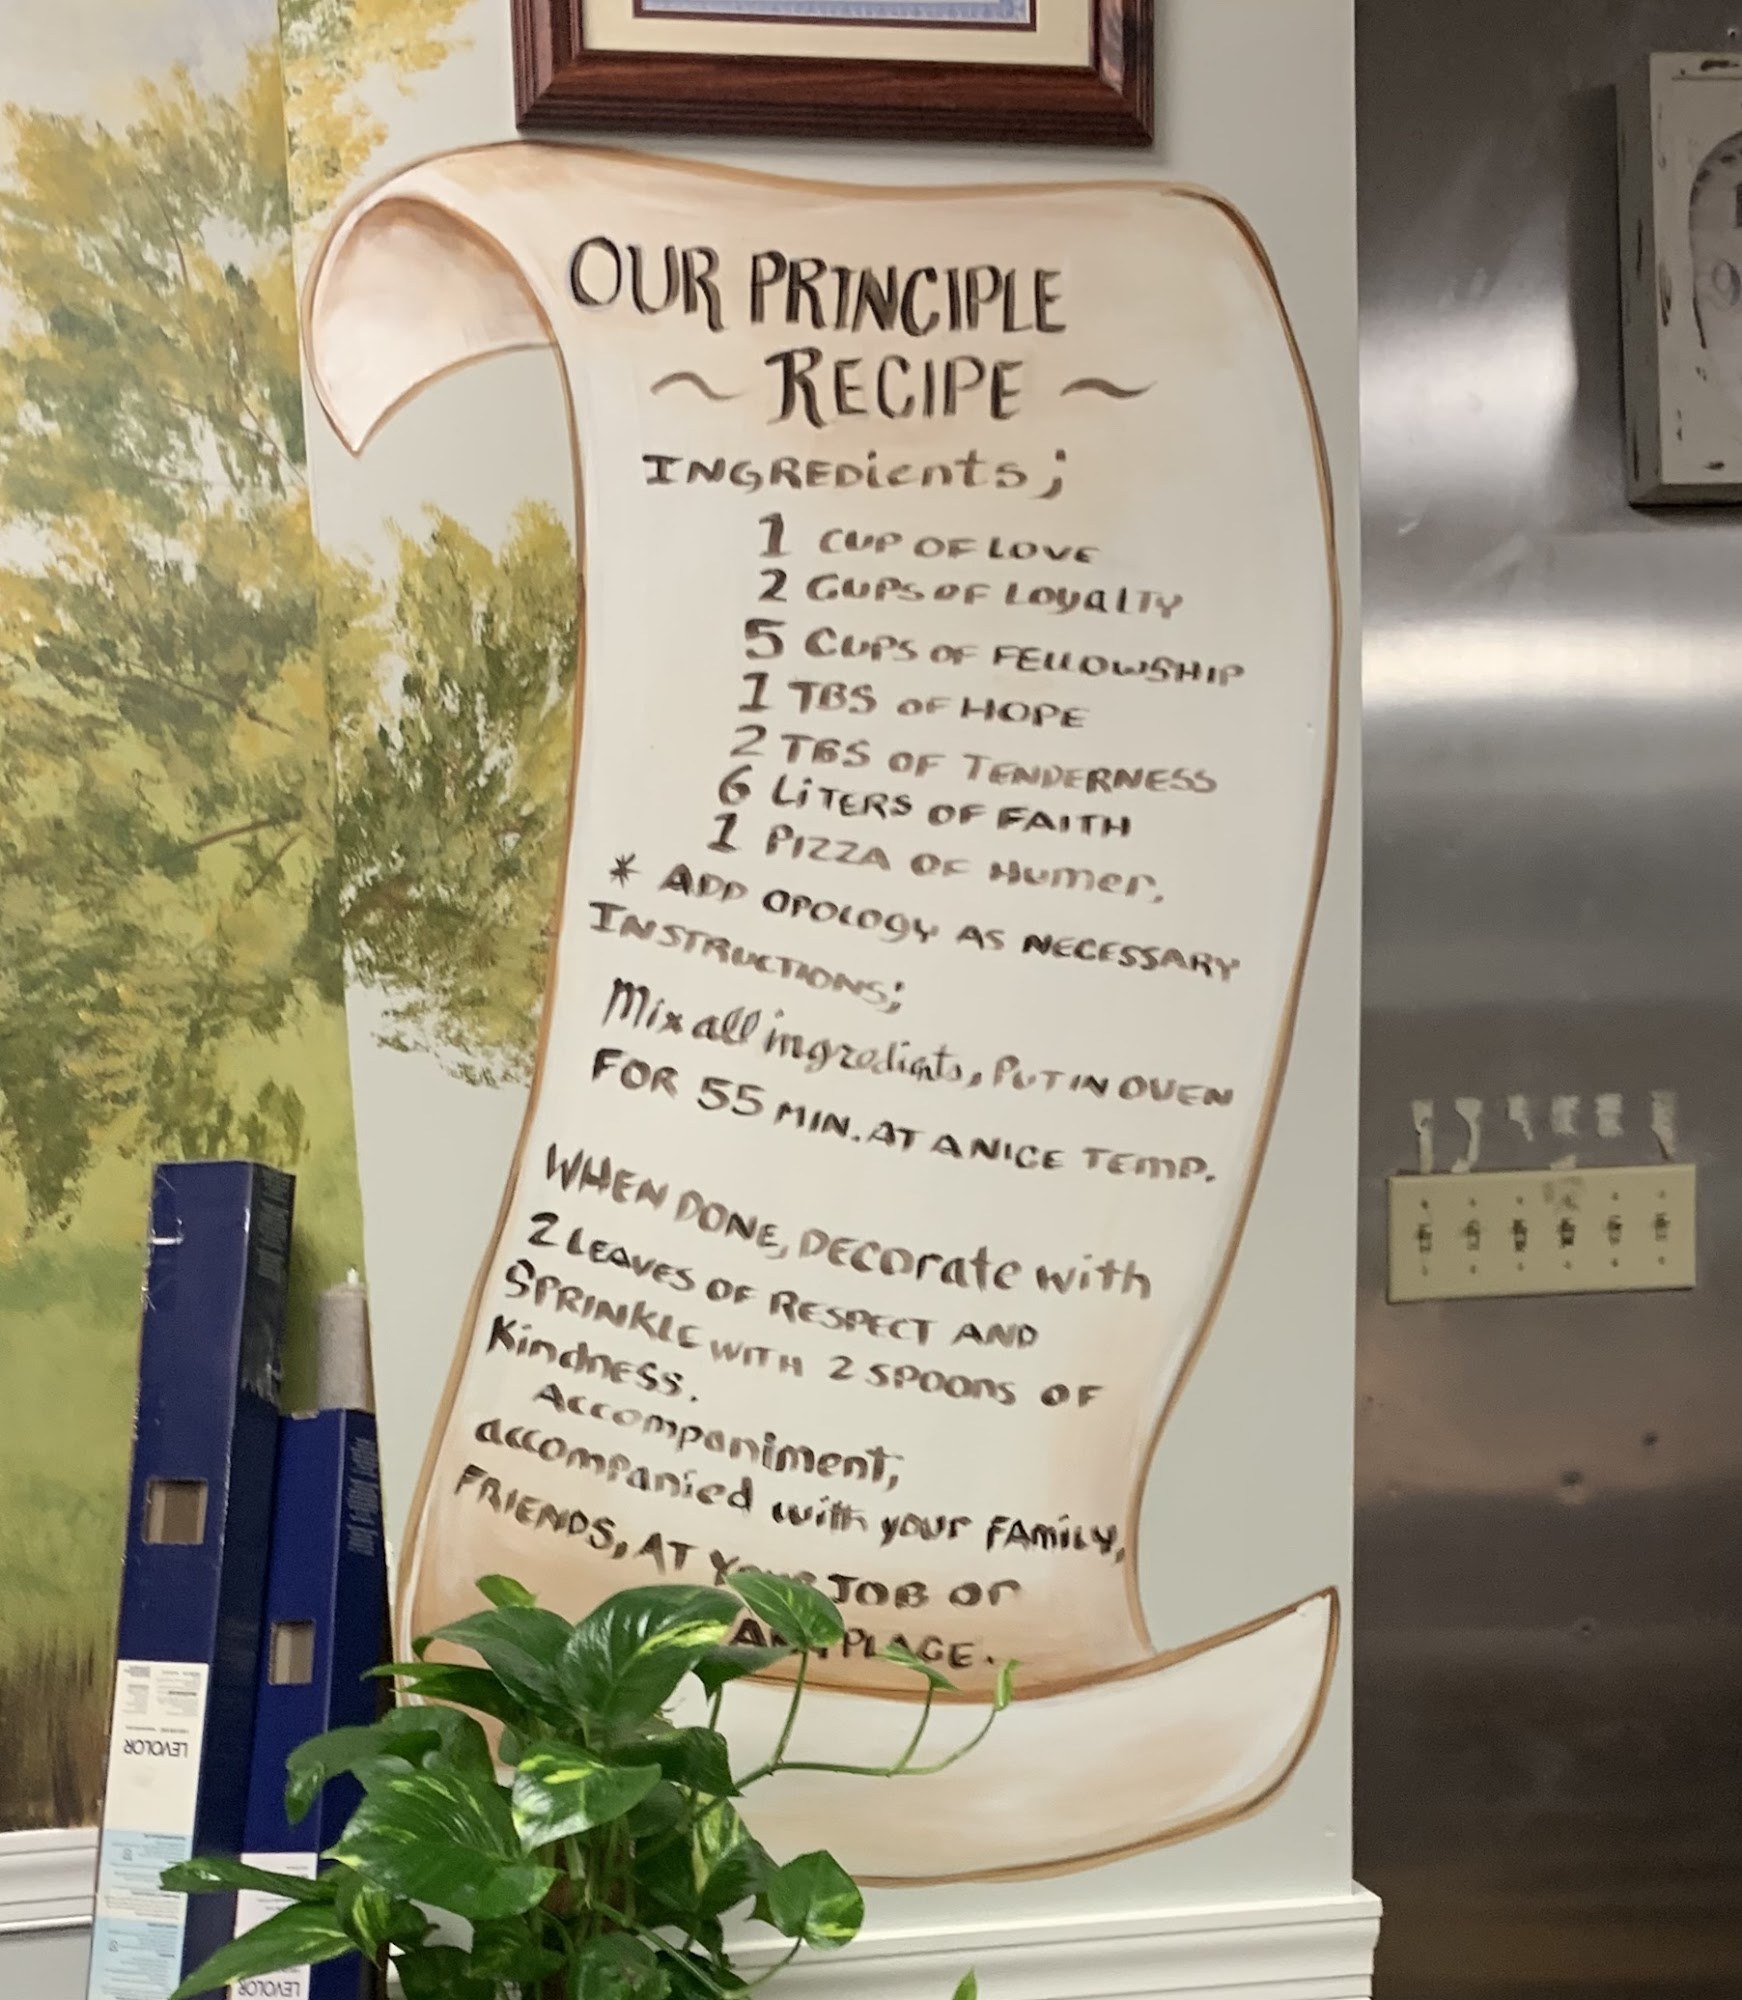 OUR PRINCIPLE
~ RECIPE ~
INGREDients;
1 CUP OF LOVE
2 CUPS OF LOyalTY
5 CUPS OF FELLOWSHIP
1 TBS OF HOPE
2 TBS OF TENDERNESS
6 LiTERS OF FAITH
1 PIZZA OF Humer,
* ADD OPOLOGY AS NECESSARY
INSTRUCTIONS;
Mix all ingredients, PUT IN OVEN
FOR 55 MIN. AT A NICE TEMP.
WHEN DONE, DECOrate with
2 LEAVES OF RESPECT AND
SPRINKLE WITH 2 SPOONS OF
KindnESS.
Accompaniment,
accompanied with your FAMiLy,
FRIENDS, AT YOUR JOB or
ANY PLACE.
LEVOLOR
LEVOLOR